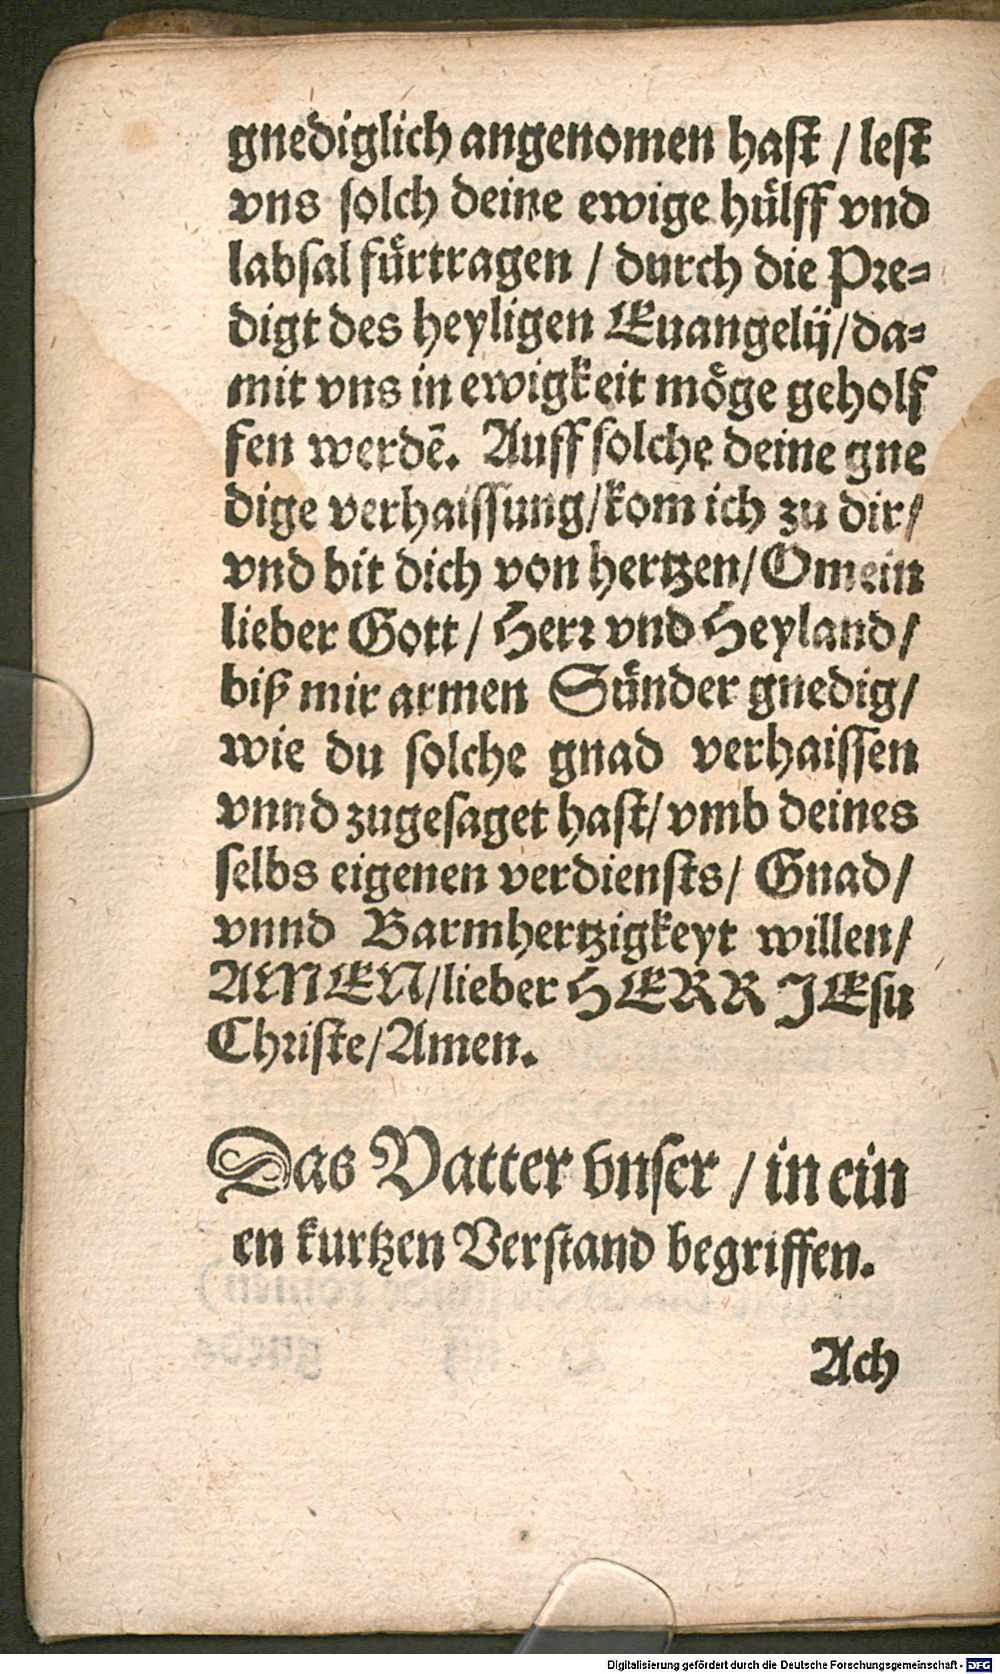 gnediglich angenomen hast / lest
vns solch deine ewige huͤlff vnd
labsal fuͤrtragen / durch die Pre-
digt des heyligen Euangelij/da-
mit vns in ewigkeit moͤge geholf
fen werdẽ. Auff solche deine gne
dige verhaissung/kom ich zu dir/
vnd bit dich von hertzen/O mein
lieber Gott / Herr vnd Heyland/
biß mir armen Suͤnder gnedig/
wie du solche gnad verhaissen
vnnd zugesaget hast/vmb deines
selbs eigenen verdiensts/ Gnad/
vnnd Barmhertzigkeyt willen/
AMEN/lieber HERR JEsu
Christe/Amen.
Das Vatter vnser / in ein
en kurtzen Verstand begriffen.
Ach
Digitalisierung gefördert durch die Deutsche Forschungsgemeinschaft - DFG